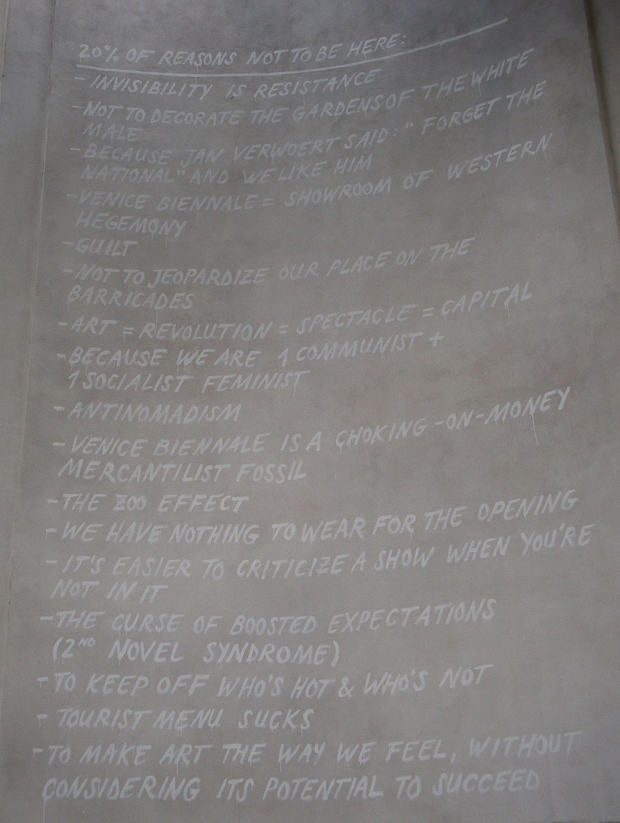 20% OF REASONS NOT TO BE HERE:
- INVISIBILITY IS RESISTANCE
- NOT TO DECORATE THE GARDENS OF THE WHITE
MALE
- BECAUSE JAN VERWOERT SAID: "FORGET THE
NATIONAL" AND WE LIKE HIM
- VENICE BIENNALE = SHOWROOM OF WESTERN
HEGEMONY
- GUILT
- NOT TO JEOPARDIZE OUR PLACE ON THE
BARRICADES
- ART = REVOLUTION = SPECTACLE = CAPITAL
- BECAUSE WE ARE 1 COMMUNIST +
1 SOCIALIST FEMINIST
- ANTINOMADISM
- VENICE BIENNALE IS A CHOKING-ON-MONEY
MERCANTILIST FOSSIL
- THE ZOO EFFECT
- WE HAVE NOTHING TO WEAR FOR THE OPENING
- IT'S EASIER TO CRITICIZE A SHOW WHEN YOU'RE
NOT IN IT
- THE CURSE OF BOOSTED EXPECTATIONS
(2ND NOVEL SYNDROME)
- TO KEEP OFF WHO'S HOT & WHO'S NOT
- TOURIST MENU SUCKS
- TO MAKE ART THE WAY WE FEEL, WITHOUT
CONSIDERING ITS POTENTIAL TO SUCCEED